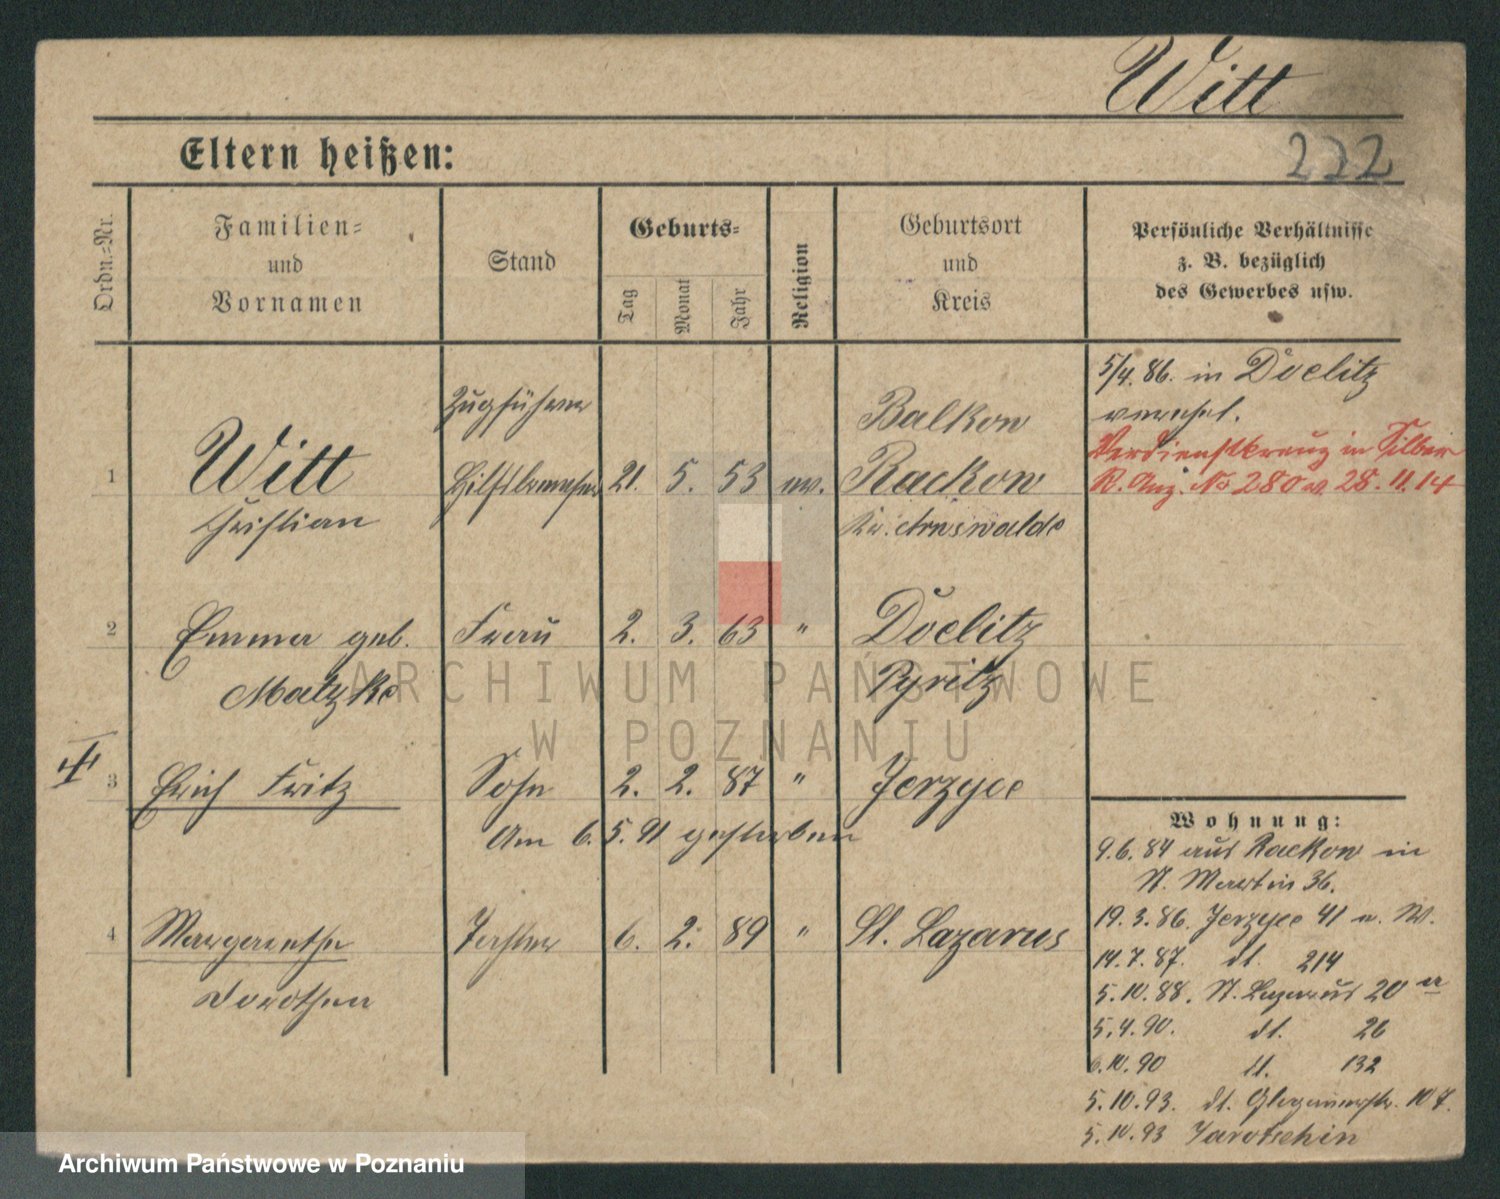 Witt
222
Eltern heißen:
Ordn.=Nr.
Familien=
und
Vornamen
Stand
Geburts=
Tag
Monat
Jahr
Religion
Geburtsort
und
Kreis
Persönliche Verhältnisse
z. B. bezüglich
des Gewerbes usw.
1
Witt
Christian
Zugführer
Hilfsbremser
21. 5. 53 ev.
Balkon
Rackow
Kr. Arnswalde
5/4. 86. in Doelitz
verehel.
Verdienstkreuz in Silber
R. Anz. No 280 v. 28.11.14
2
Emma geb.
Matzke
Frau
2. 3. 63 "
Doelitz
Pyritz
3
Erich Fritz
Sohn
2. 2. 87 "
Jerzyce
Am 6.5.91 gestorben
4
Margarethe
Dorothea
Tochter
6. 2. 89 "
St. Lazarus
Wohnung:
9.6.84 aus Rackow in
St. Martin 36.
19.3.86. Jerzyce 41 a. W.
14.7.87. dt. 214
5.10.88. St. Lazarus 20 a
5.4.90. dt. 26
6.10.90 dt. 132
5.10.93. dt. Glogauerstr. 107.
5.10.93 Jarotschin
ARCHIWUM PAŃSTWOWE
W POZNANIU
Archiwum Państwowe w Poznaniu